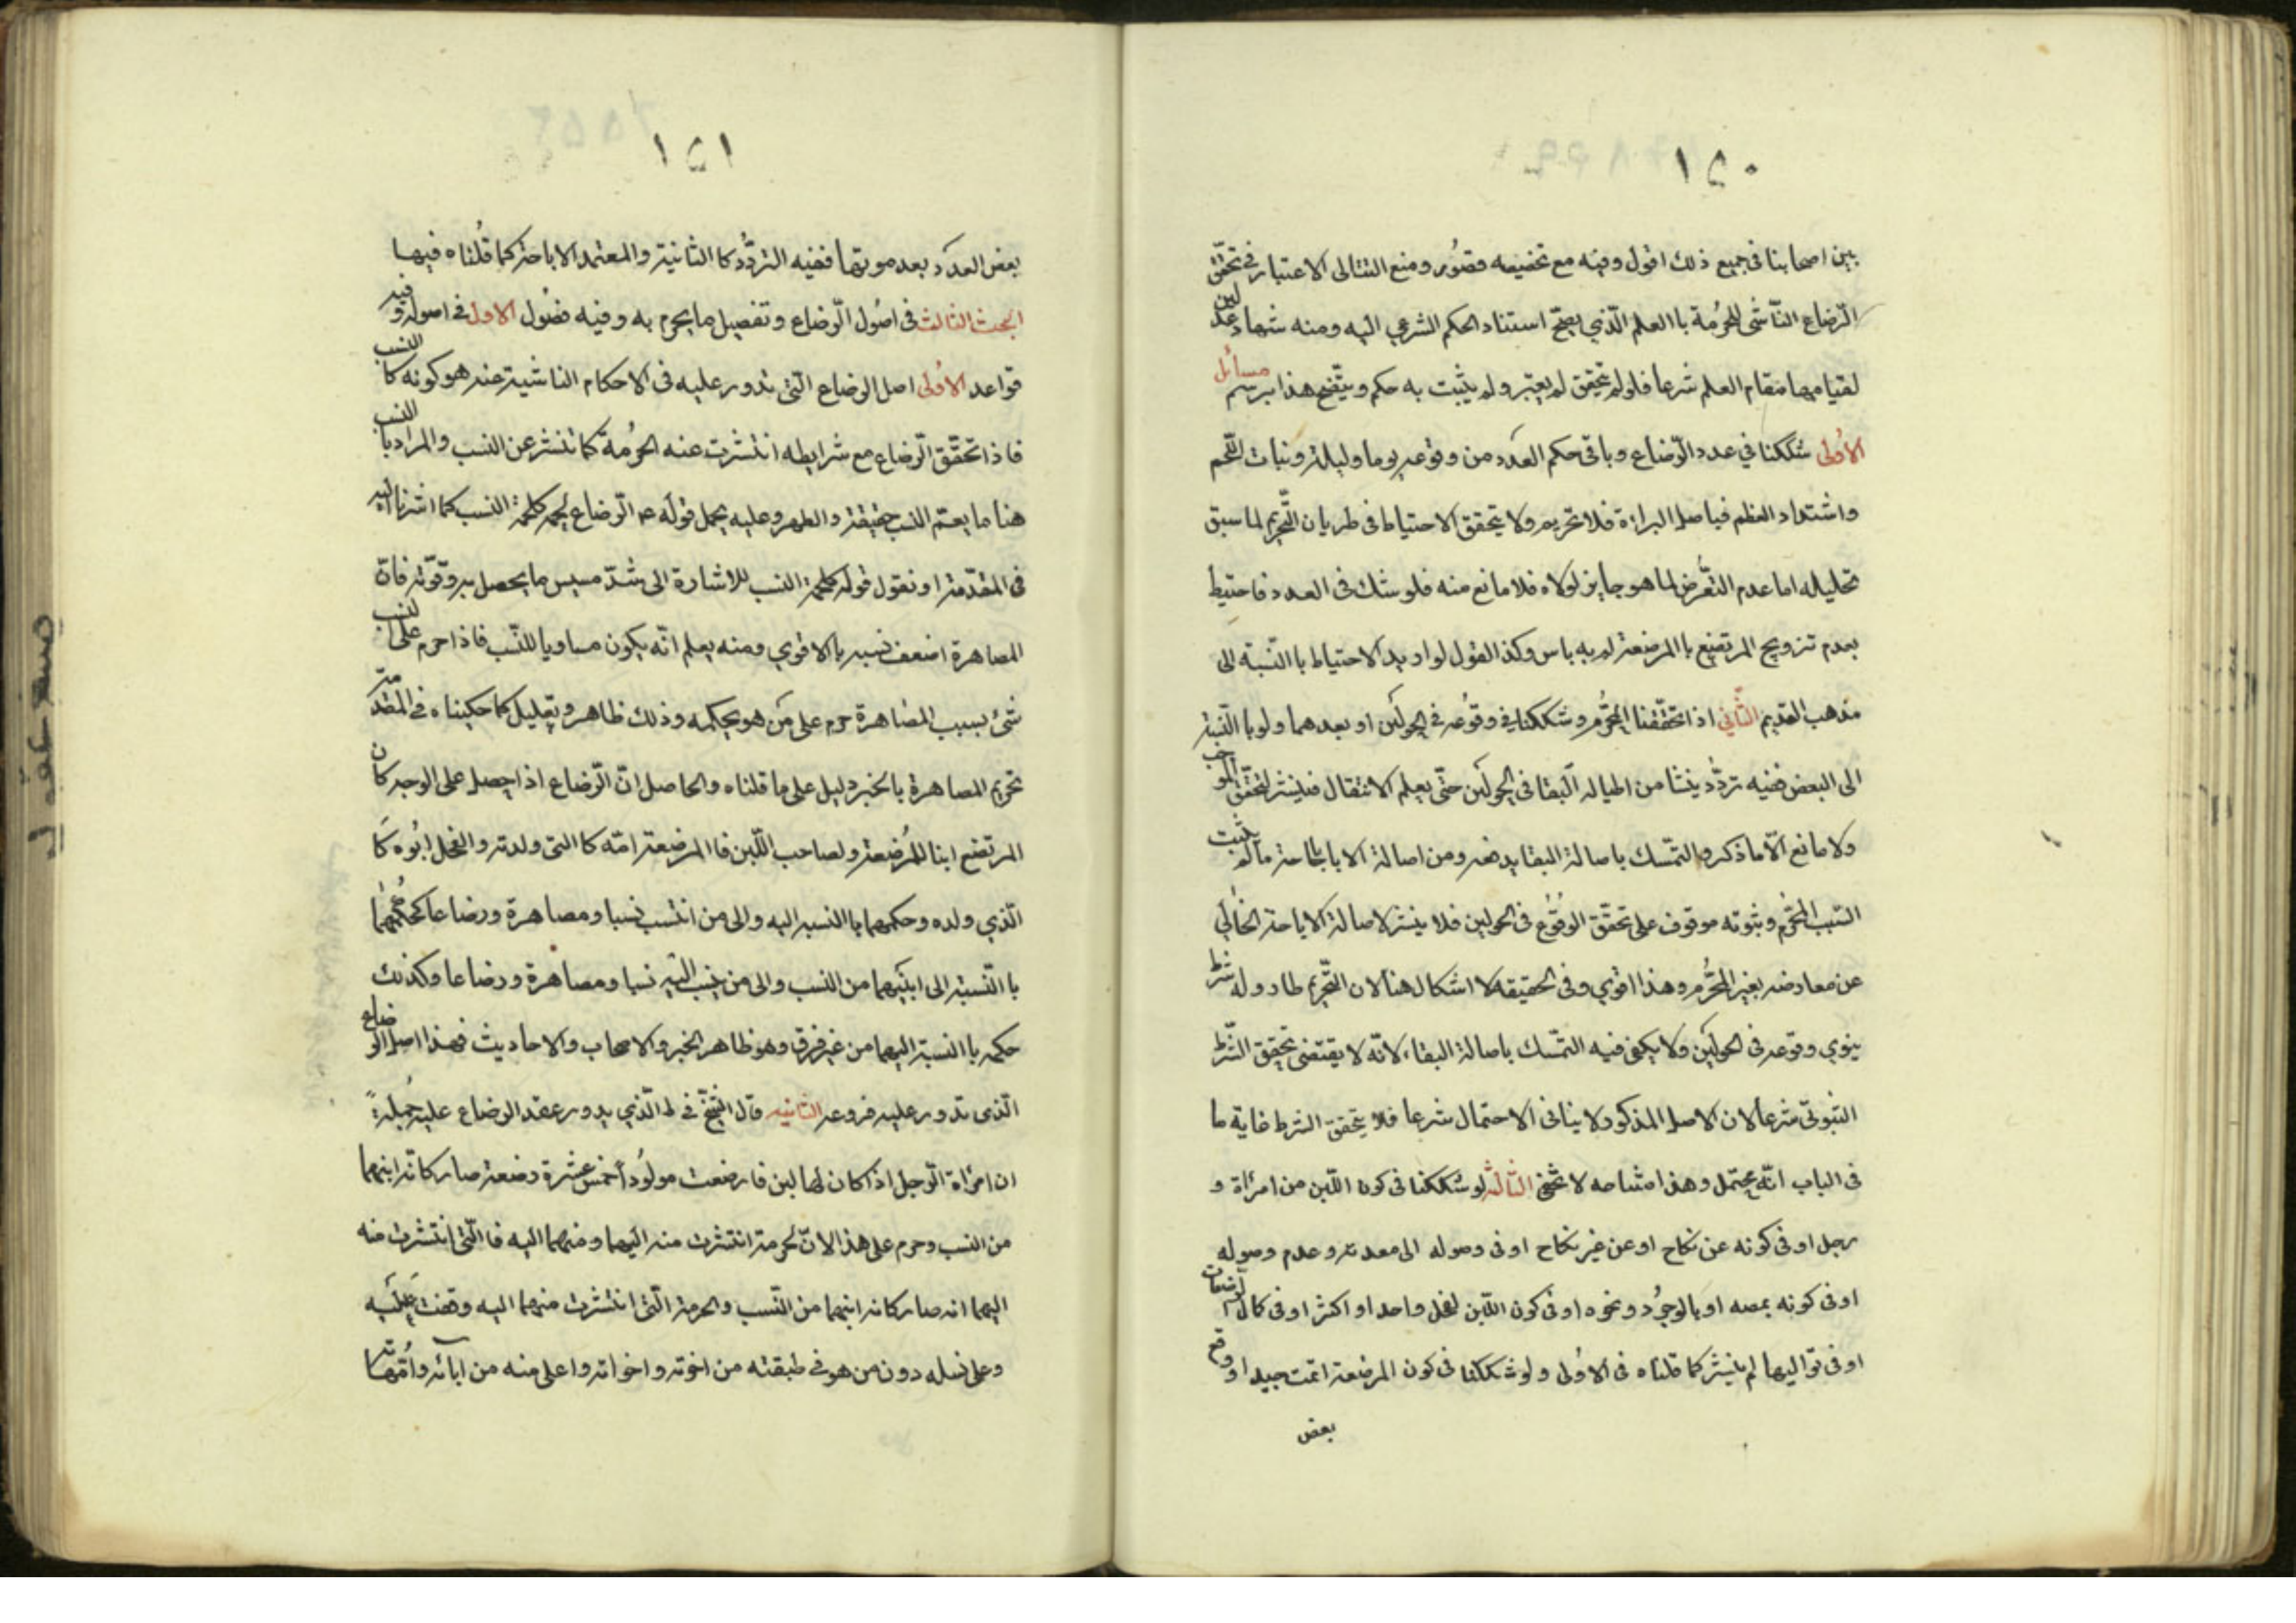 ١٥٠
بين اصحابنا فى جميع ذلك اقول وفيه مع تخصيصه قصور ومنع التتالى الاعتبار فى تحقق
الرضاع الناشى للحرمة با العلم الذي يصح استناد الحكم الشرعي اليه ومنه شهادة عدلين
لقيامهما مقام العلم شرعا فلو لم يتحقق لم يعتبر ولم يثبت به حكم ويتضح هذا برسم مسائل
الاولى شككنا في عدد الرضاع وباقى حكم العدد من وقوعه يوما وليلة ونبات اللحم
واشتداد العظم فباصل البراءة فلا تحريم ولا يتحقق الاحتياط فى طريان التحريم لما سبق
تحليله اما عدم التعرض لما هو جايز لولاه فلا مانع منه فلو شك فى العدد فاحتيط
بعدم تزويج المرتضع با المرضعة لم به باس وكذا القول لو اريد الاحتياط با النسبة الى
مذهب القديم الثاني اذا تحققنا المحرم وشككنا في وقوعه فى الحولين او بعدهما ولو با النسبة
الى البعض ففيه تردد ينشا من البقا فى الحولين حتى يعلم الانتقال فلينشر لتحقق الموجب
ولا مانع الا ما ذكر والتمسك باصالة البقا يدفعه ومن اصالة الاباحة ما لم يثبت
السبب المحرم وثبوته موقوف على تحقق الوقوع فى الحولين فلا ينشر لاصالة الاباحة الخالي
عن معارضه بغير المحرم وهذا اقوي وفى الحقيقه لا اشكال هنا لان التحريم طار وله شرط
ينوي وقوعه فى الحولين ولا يكفى فيه التمسك باصالة البقاء لانه لا يقتضى تحقق الشرط
الثبوتى شرعا لان الاصل المذكور لا ينافى الاحتمال شرعا فلا يتحقق الشرط غاية ما
فى الباب انه محتمل وهذا لا تخفى الثالثه لو شككنا فى كون اللبن من امراة و
رجل او فى كونه عن نكاح او عن غير نكاح او فى وصوله الى معدته وعدم وصوله
او فى كونه بمصه او بالوجود ونحوه او فى كون اللبن لفحل واحد او اكثر او فى كمال الرضعات
او فى تواليها لم ينشر كما قلناه فى الاولى ولو شككنا فى كون المرضعة اتمت جيدا او وقع
بعض
١٥١
بعض العدد بعد موتها ففيه التردد كا الثانية والمعتمد الاباحة كما قلناه فيها
البحث الثالث فى اصول الرضاع وتفصيل ما يحرم به وفيه فصول الاول فى اصوله وفيه
قواعد الاولى اصل الرضاع التى تدور عليه فى الاحكام الناشية عنه هو كونه كا النسب
فاذا تحقق الرضاع مع شرايطه انتشرت عنه الحرمة كما تنشر عن النسب والمراد با النسب
هنا ما يعم النسب حقيقة والصهر وعليه يحمل قوله ع الرضاع لحمة كلحمة النسب كما اشرنا اليه
فى المقدمة او نقول قوله كلحمة النسب للاشارة الى شدة مسيس ما يحصل به وقوته فان
المصاهرة اضعف نسبه با الاقوي ومنه يعلم انه يكون مساويا للنسب فاذا حرم على النسب
شئ بسبب المصاهرة حرم على من هو بحكمه وذلك ظاهر وتعليل كما حكيناه فى المقدمة
تحريم المصاهرة با الخبر دليل على ما قلناه والحاصل ان الرضاع اذا حصل على الوجه كان
المرتضع ابنا للمرضعة ولصاحب اللبن فا المرضعة امه كا التى ولدته والفحل ابوه كا
الذي ولده وحكمهما با النسبه اليه والى من انتسب نسبا ومصاهرة ورضاعا كحكمهما
با النسبة الى ابنيهما من النسب والى من ينسب اليه نسبا ومصاهرة ورضاعا وكذلك
حكمه با النسبة اليهما من غير فرق وهو ظاهر الخبر والاصحاب والاحاديث فهذا اصل الرضاع
الذى تدور عليه فروعه الثانيه قال الشيخ فى ط الذي يدور عقد الرضاع عليه جملة
ان امراة الرجل اذا كان لها لبن فارضعت مولودا خمس عشرة رضعة صار كانه ابنهما
من النسب وحرم على هذا لان الحرمة انتشرت منه اليهما ومنهما اليه فا التى انتشرت منه
اليهما انه صار كانه ابنهما من النسب والحرمة التى انتشرت منهما اليه وقفت عليه
وعلى نسله دون من هو فى طبقته من اخوته واخواته واعلى منه من ابائه وامهاته